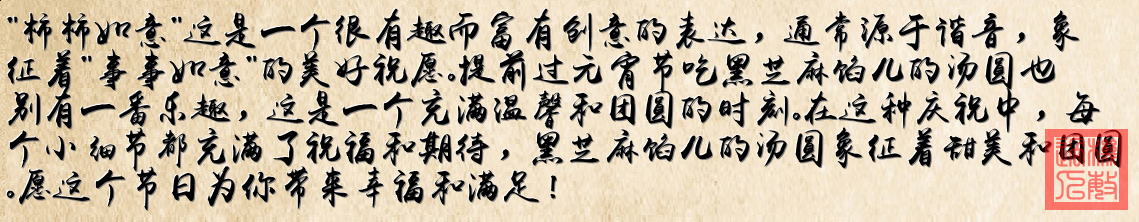 "柿柿如意"这是一个很有趣而富有创意的表达，通常源于谐音，象
征着"事事如意"的美好祝愿。提前过元宵节吃黑芝麻馅儿的汤圆也
别有一番乐趣，这是一个充满温馨和团圆的时刻。在这种庆祝中，每
个小细节都充满了祝福和期待，黑芝麻馅儿的汤圆象征着甜美和团圆
。愿这个节日为你带来幸福和满足！